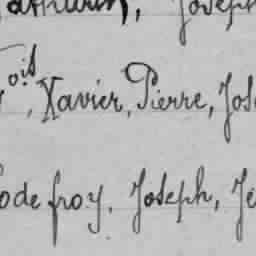 Joseph
ois, Xavier, Pierre, Jos
ode froy, Joseph, Je